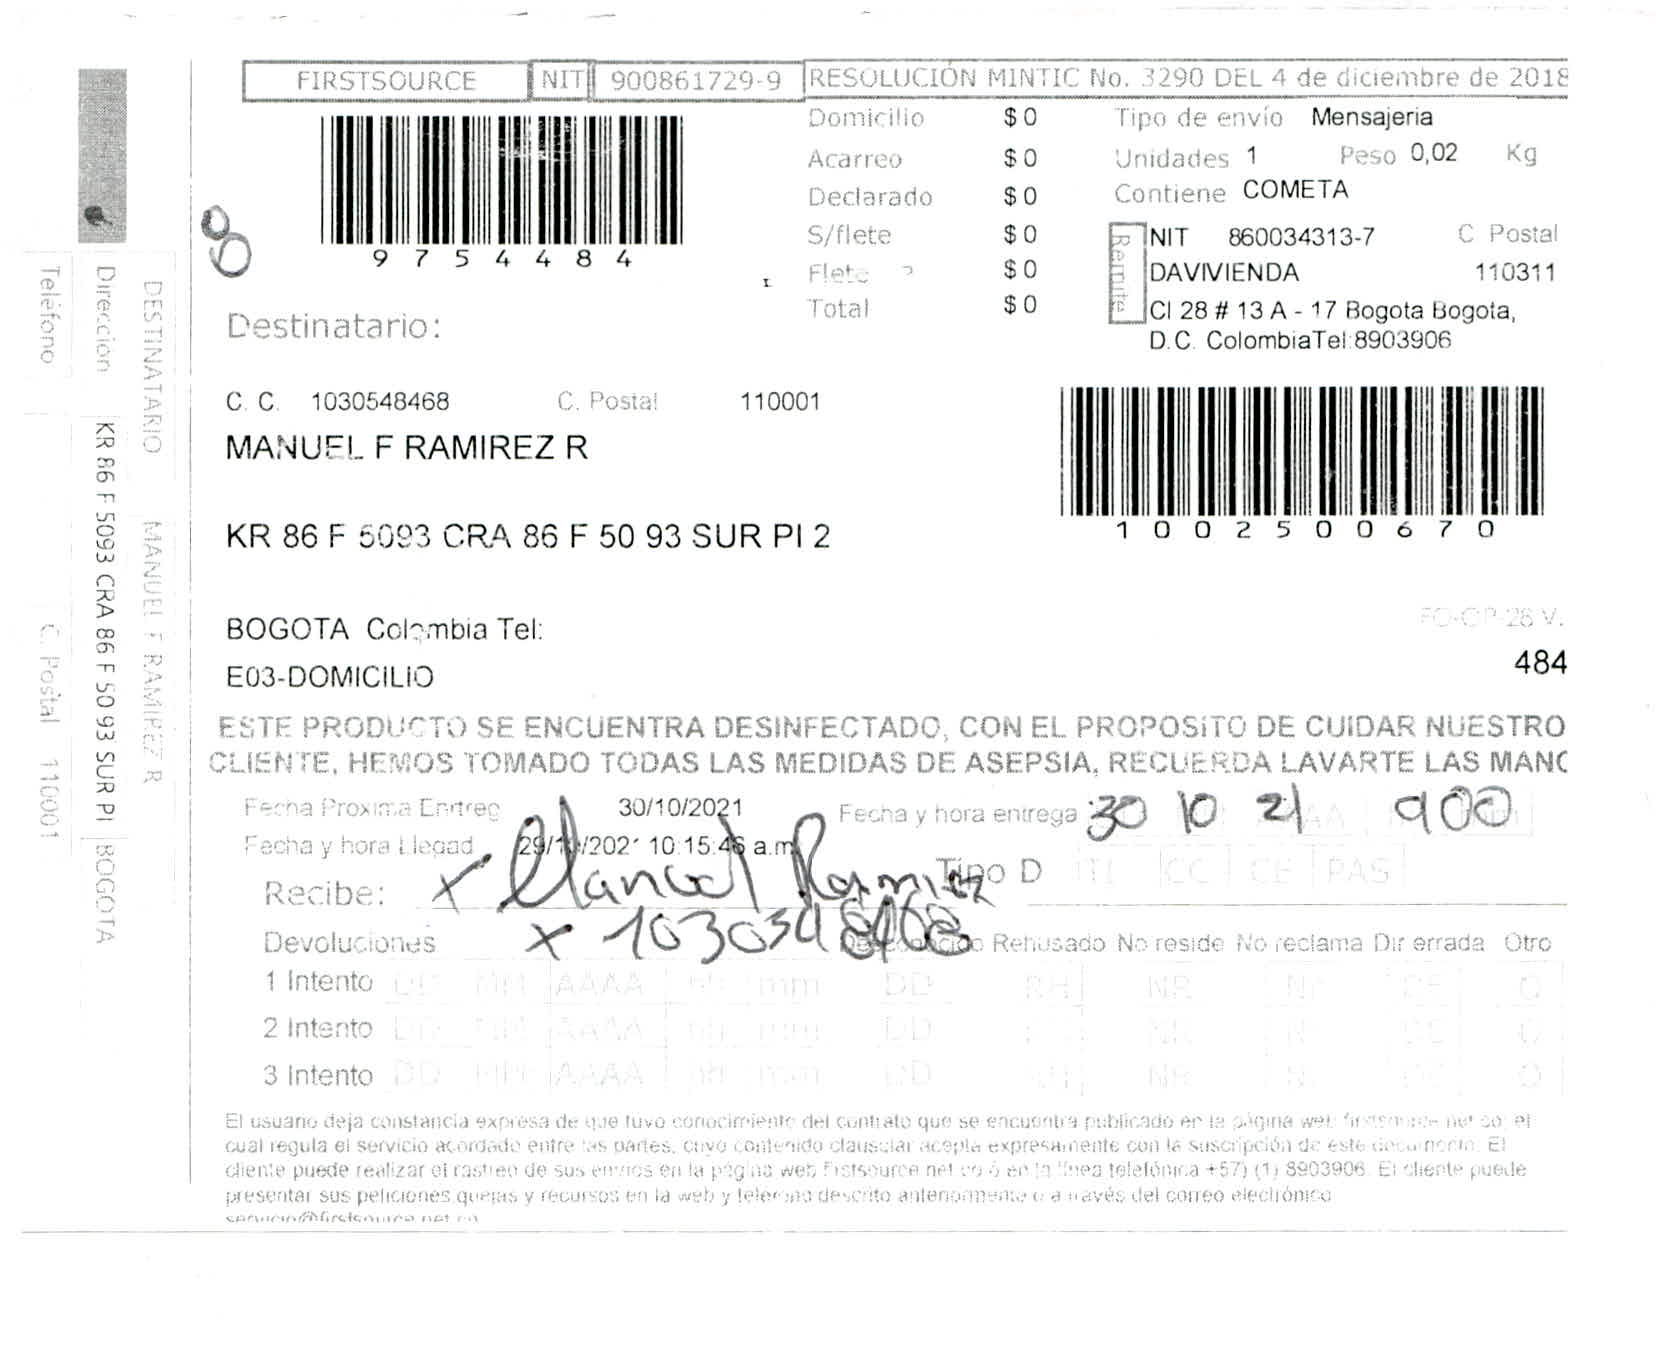 FIRSTSOURCE NIT 900861729-9 RESOLUCIÓN MINTIC No. 3290 DEL 4 de diciembre de 2018
9754484
Domicilio $ 0
Acarreo $ 0
Declarado $ 0
S/flete $ 0
Flete $ 0
Total $ 0
Tipo de envío Mensajeria
Unidades 1 Peso 0,02 Kg
Contiene COMETA
Remite
NIT 860034313-7 C Postal
DAVIVIENDA 110311
Cl 28 # 13 A - 17 Bogota Bogota,
D.C. ColombiaTel:8903906
Destinatario:
C. C. 1030548468 C. Postal 110001
MANUEL F RAMIREZ R
1002500670
KR 86 F 5093 CRA 86 F 50 93 SUR PI 2
BOGOTA Colombia Tel:
FO-OP-28 V.
484
E03-DOMICILIO
ESTE PRODUCTO SE ENCUENTRA DESINFECTADO, CON EL PROPOSITO DE CUIDAR NUESTRO
CLIENTE, HEMOS TOMADO TODAS LAS MEDIDAS DE ASEPSIA, RECUERDA LAVARTE LAS MANO
Fecha Proxima Entreg 30/10/2021 Fecha y hora entrega 30 10 21 900
Fecha y hora Llegad 29/10/2021 10:15:46 a.m
Tipo D TI CC CE PAS
Recibe: x Manuel Ramirez
x 1030548468
Devoluciones Desconocido Rehusado No reside No reclama Dir errada Otro
1 Intento DD MM AAAA hh mm DD RH NR DE O
2 Intento DD MM AAAA hh mm DD NR DE O
3 Intento DD MM AAAA hh mm DD NR DE O
El usuario deja constancia expresa de que tuvo conocimiento del contrato que se encuentra publicado en la página web firstsource net co: el
cual regula el servicio acordado entre las partes, cuyo contenido clausular acepta expresamente con la suscripción de este documento. El
cliente puede realizar el rastreo de sus envios en la página web Fistsource net co ó en la línea telefónica +57) (1) 8903906. El cliente puede
presentar sus peliciones quejas y recursos en la web y teléfono descrito anteriormente o a través del correo electrónico
servicio@firstsource.net.co
DESTINATARIO MANUEL F RAMIREZ R
Dirección KR 86 F 5093 CRA 86 F 50 93 SUR PI BOGOTA
Teléfono C. Postal 110001